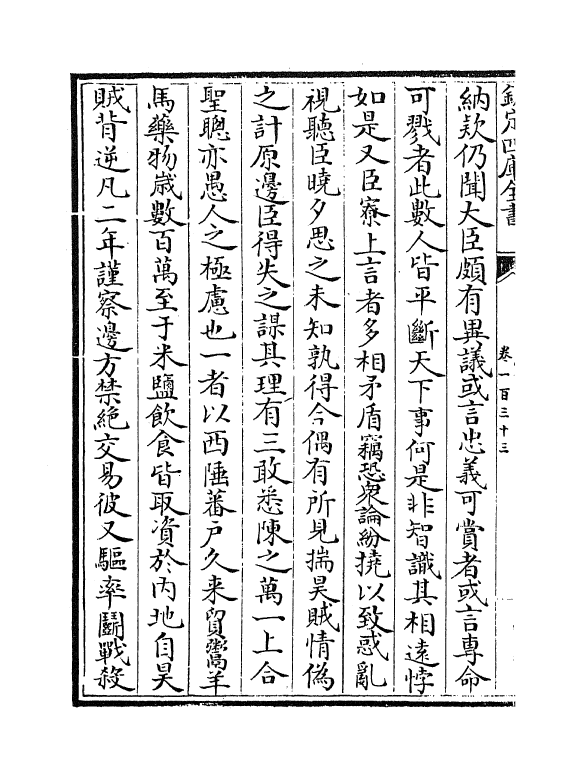 欽定四庫全書
卷一百三十三
納欵仍聞大臣頗有異議或言忠義可賞者或言專命
可戮者此數人皆平斷天下事何是非智識其相遠悖
如是又臣寮上言者多相矛盾竊恐衆論紛撓以致惑亂
視聽臣曉夕思之未知孰得今偶有所見揣昊賊情偽
之計原邊臣得失之謀其理有三敢悉陳之萬一上合
聖聰亦愚人之極慮也一者以西陲蕃戶久来貿鬻羊
馬藥物歳數百萬至于米鹽飲食皆取資於内地自昊
賊背逆凡二年謹察邊方禁絶交易彼又驅率鬭戰殺